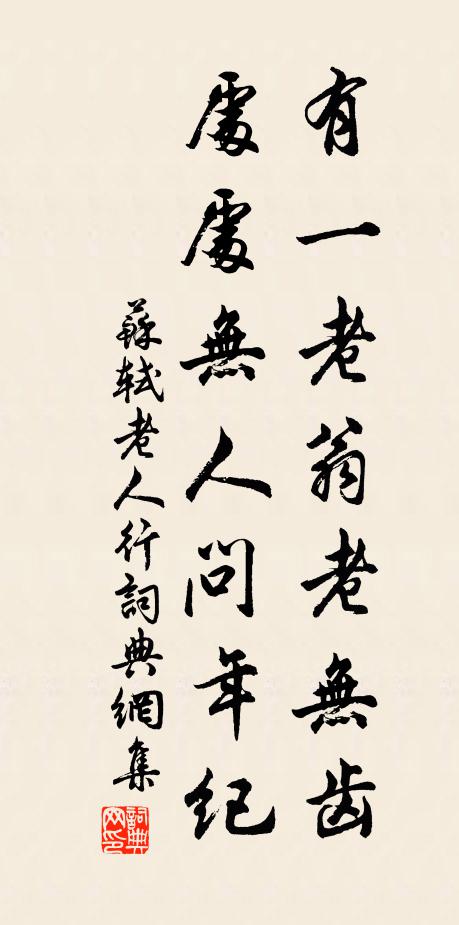 有一老翁老無齒
處處無人問年紀
蘇軾老人行詞典網集
詞典網印